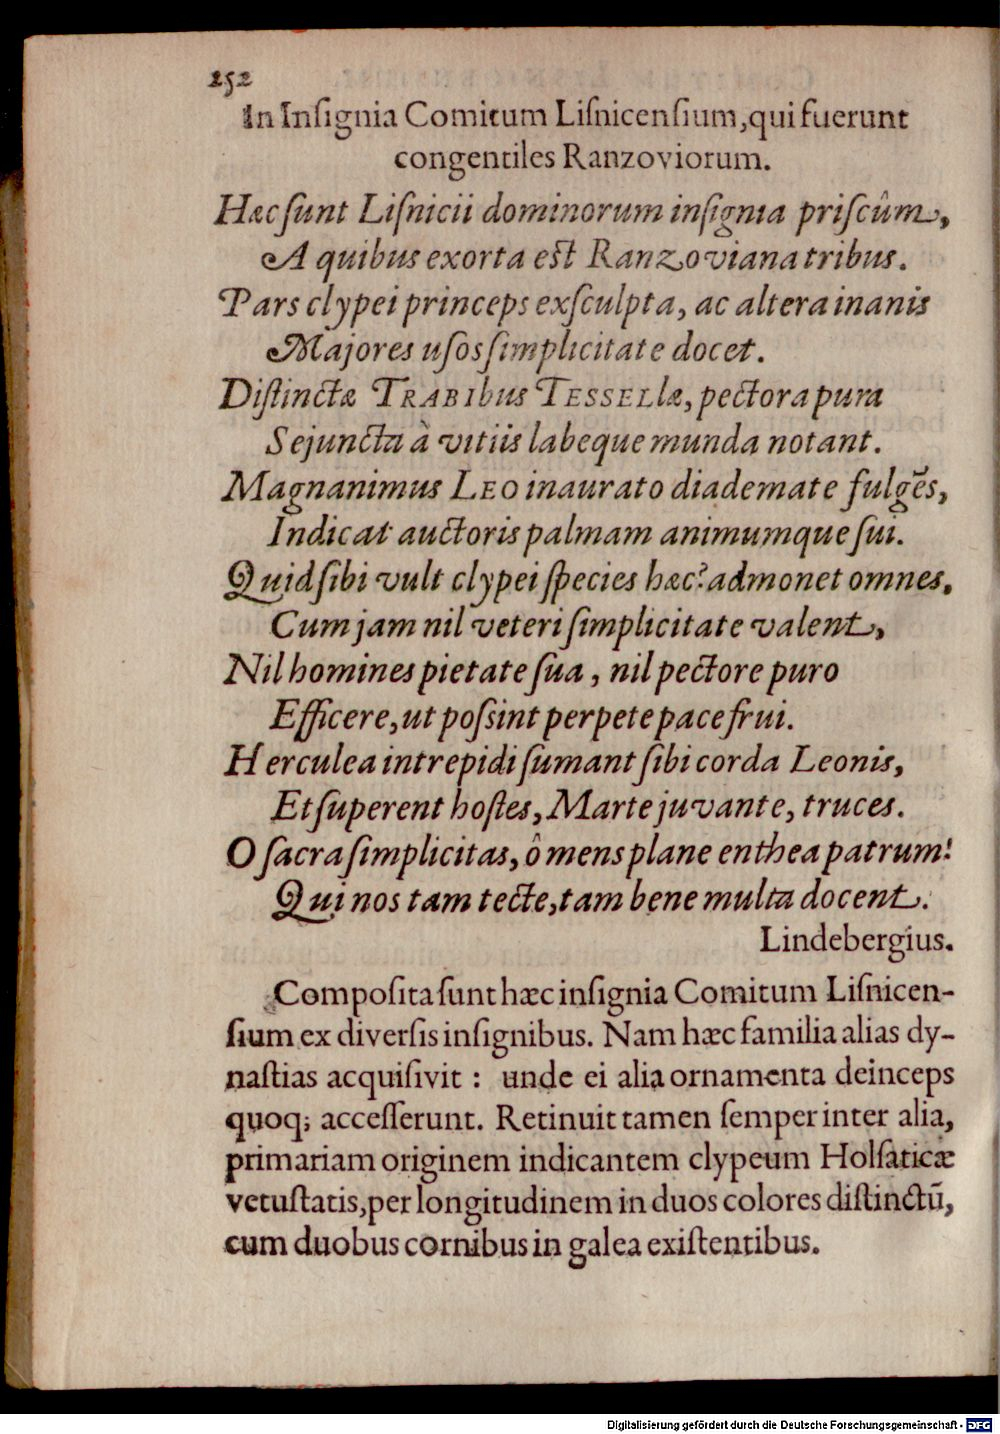 252
In Inſignia Comitum Liſnicenſium, qui fuerunt
congentiles Ranzoviorum.
Hæc ſunt Liſnicii dominorum inſignia priſcûm,
A quibus exorta eſt Ranzoviana tribus.
Pars clypei princeps exſculpta, ac altera inanis
Majores uſos ſimplicitate docet.
Diſtinctæ TRABIbus TESSELlæ, pectora pura
Sejuncta à vitiis labeque munda notant.
Magnanimus LEO inaurato diademate fulgēs,
Indicat auctoris palmam animumque ſui.
Quid ſibi vult clypei ſpecies hæc? admonet omnes,
Cum jam nil veteri ſimplicitate valent,
Nil homines pietate ſua, nil pectore puro
Efficere, ut poſsint perpete pace frui.
Herculea intrepidi ſumant ſibi corda Leonis,
Et ſuperent hoſtes, Marte juvante, truces.
O ſacra ſimplicitas, ô mens plane enthea patrum!
Qui nos tam tecte, tam bene multa docent.
Lindebergius.
Compoſita ſunt hæc inſignia Comitum Liſnicen-
ſium ex diverſis inſignibus. Nam hæc familia alias dy-
naſtias acquiſivit: unde ei alia ornamenta deinceps
quoq; acceſſerunt. Retinuit tamen ſemper inter alia,
primariam originem indicantem clypeum Holſaticæ
vetuſtatis, per longitudinem in duos colores diſtinctū,
cum duobus cornibus in galea exiſtentibus.
Digitalisierung gefördert durch die Deutsche Forschungsgemeinschaft - DFG